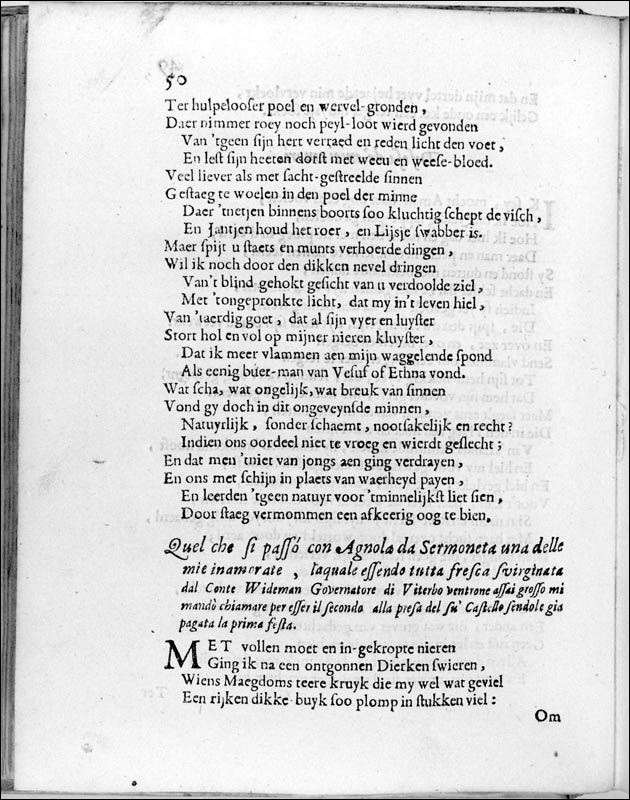 50
Ter hulpelooser poel en wervel-gronden,
Daer nimmer roey noch peyl-loot wierd gevonden
Van 'tgeen sijn hert verraed en reden licht den voet,
En lest sijn heeten dorst met weeu en weese-bloed.
Veel liever als met sacht-gestreelde sinnen
Gestaeg te woelen in den poel der minne
Daer 'tnetjen binnens boorts soo kluchtig schept de visch,
En Jantjen houd het roer, en Lijsje swabber is.
Maer spijt u staets en munts verhoerde dingen,
Wil ik noch door den dikken nevel dringen
Van't blind-gehokt gesicht van u verdoolde ziel,
Met 'tongepronkte licht, dat my in't leven hiel,
Van 'taerdig goet, dat al sijn vyer en luyster
Stort hol en vol op mijner nieren kluyster,
Dat ik meer vlammen aen mijn waggelende spond
Als eenig buer-man van Vesuf of Ethna vond.
Wat scha, wat ongelijk, wat breuk van sinnen
Vond gy doch in dit ongeveynsde minnen,
Natuyrlijk, sonder schaemt, nootsakelijk en recht?
Indien ons oordeel niet te vroeg en wierdt geslecht;
En dat men 'tniet van jongs aen ging verdrayen,
En ons met schijn in plaets van waerheyd payen,
En leerden 'tgeen natuyr voor 'tminnelijkst liet sien,
Door staeg vermommen een afkeerig oog te bien.
Quel che si passó con Agnola da Sermoneta una delle
mie inamorate, laquale essendo tutta fresca svirginata
dal Conte Wideman Governatore di Viterbo ventrone assai grosso mi
mandò chiamare per esser il secondo alla presa del su' Castello sendole gia
pagata la prima festa.
MET vollen moet en in-gekropte nieren
Ging ik na een ontgonnen Dierken swieren,
Wiens Maegdoms teere kruyk die my wel wat geviel
Een rijken dikke-buyk soo plomp in stukken viel:
Om